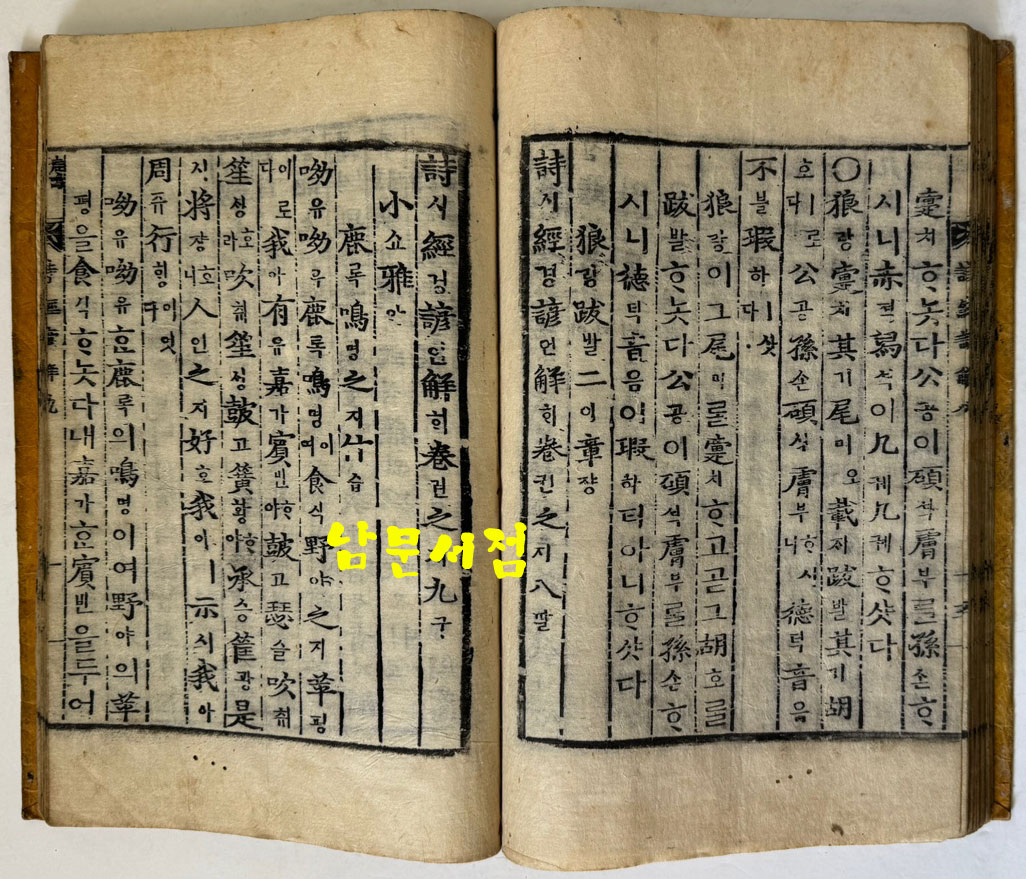 疐치ᄒᆞ놋다公공이碩셕膚부를孫손ᄒᆞ
시니赤젹舃셕이几궤几궤ᄒᆞ샷다
○狼랑疐치其기尾미오載ᄌᆡ跋발其기胡
호ㅣ로다公공孫손碩셕膚부ᄒᆞ시니德덕音음
不블瑕하ㅣ샷다
狼랑이그尾미를疐치ᄒᆞ고곧그胡호를
跋발ᄒᆞ놋다公공이碩셕膚부를孫손ᄒᆞ
시니德덕音음이瑕하티아니ᄒᆞ샷다
狼랑跋발二이章쟝
詩시經경諺언解ᄒᆡ卷권之지八팔
詩시經경諺언解ᄒᆡ卷권之지九구
小쇼雅아
鹿록鳴명之지什습
呦유呦유鹿록鳴명이여食식野야之지苹평
이로다我아有유嘉가賓빈ᄒᆞ야鼓고瑟슬吹취
笙ᄉᆡᆼ호라吹취笙ᄉᆡᆼ鼓고簧황ᄒᆞ야承승筐광是
시將쟝호니人인之지好호我아ㅣ示시我아
周쥬行ᄒᆡᆼ이엇다
呦유呦유ᄒᆞᆫ鹿록의鳴명이여野야의苹
평을食식ᄒᆞ놋다내嘉가ᄒᆞᆫ賓빈을두어
남문서점